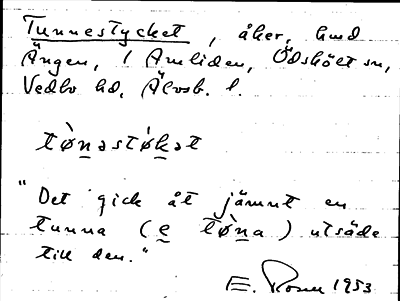 Tunnestycket, åker, hmd
Ängen, / Amliden, Ödskölt sn,
Vedbo hd, Älvsb. l.
tø̀nəstẏ́kət
"Det gick åt jämnt en
tunna (e tø̀na) utsäde
till den."
E. Rosen 1953